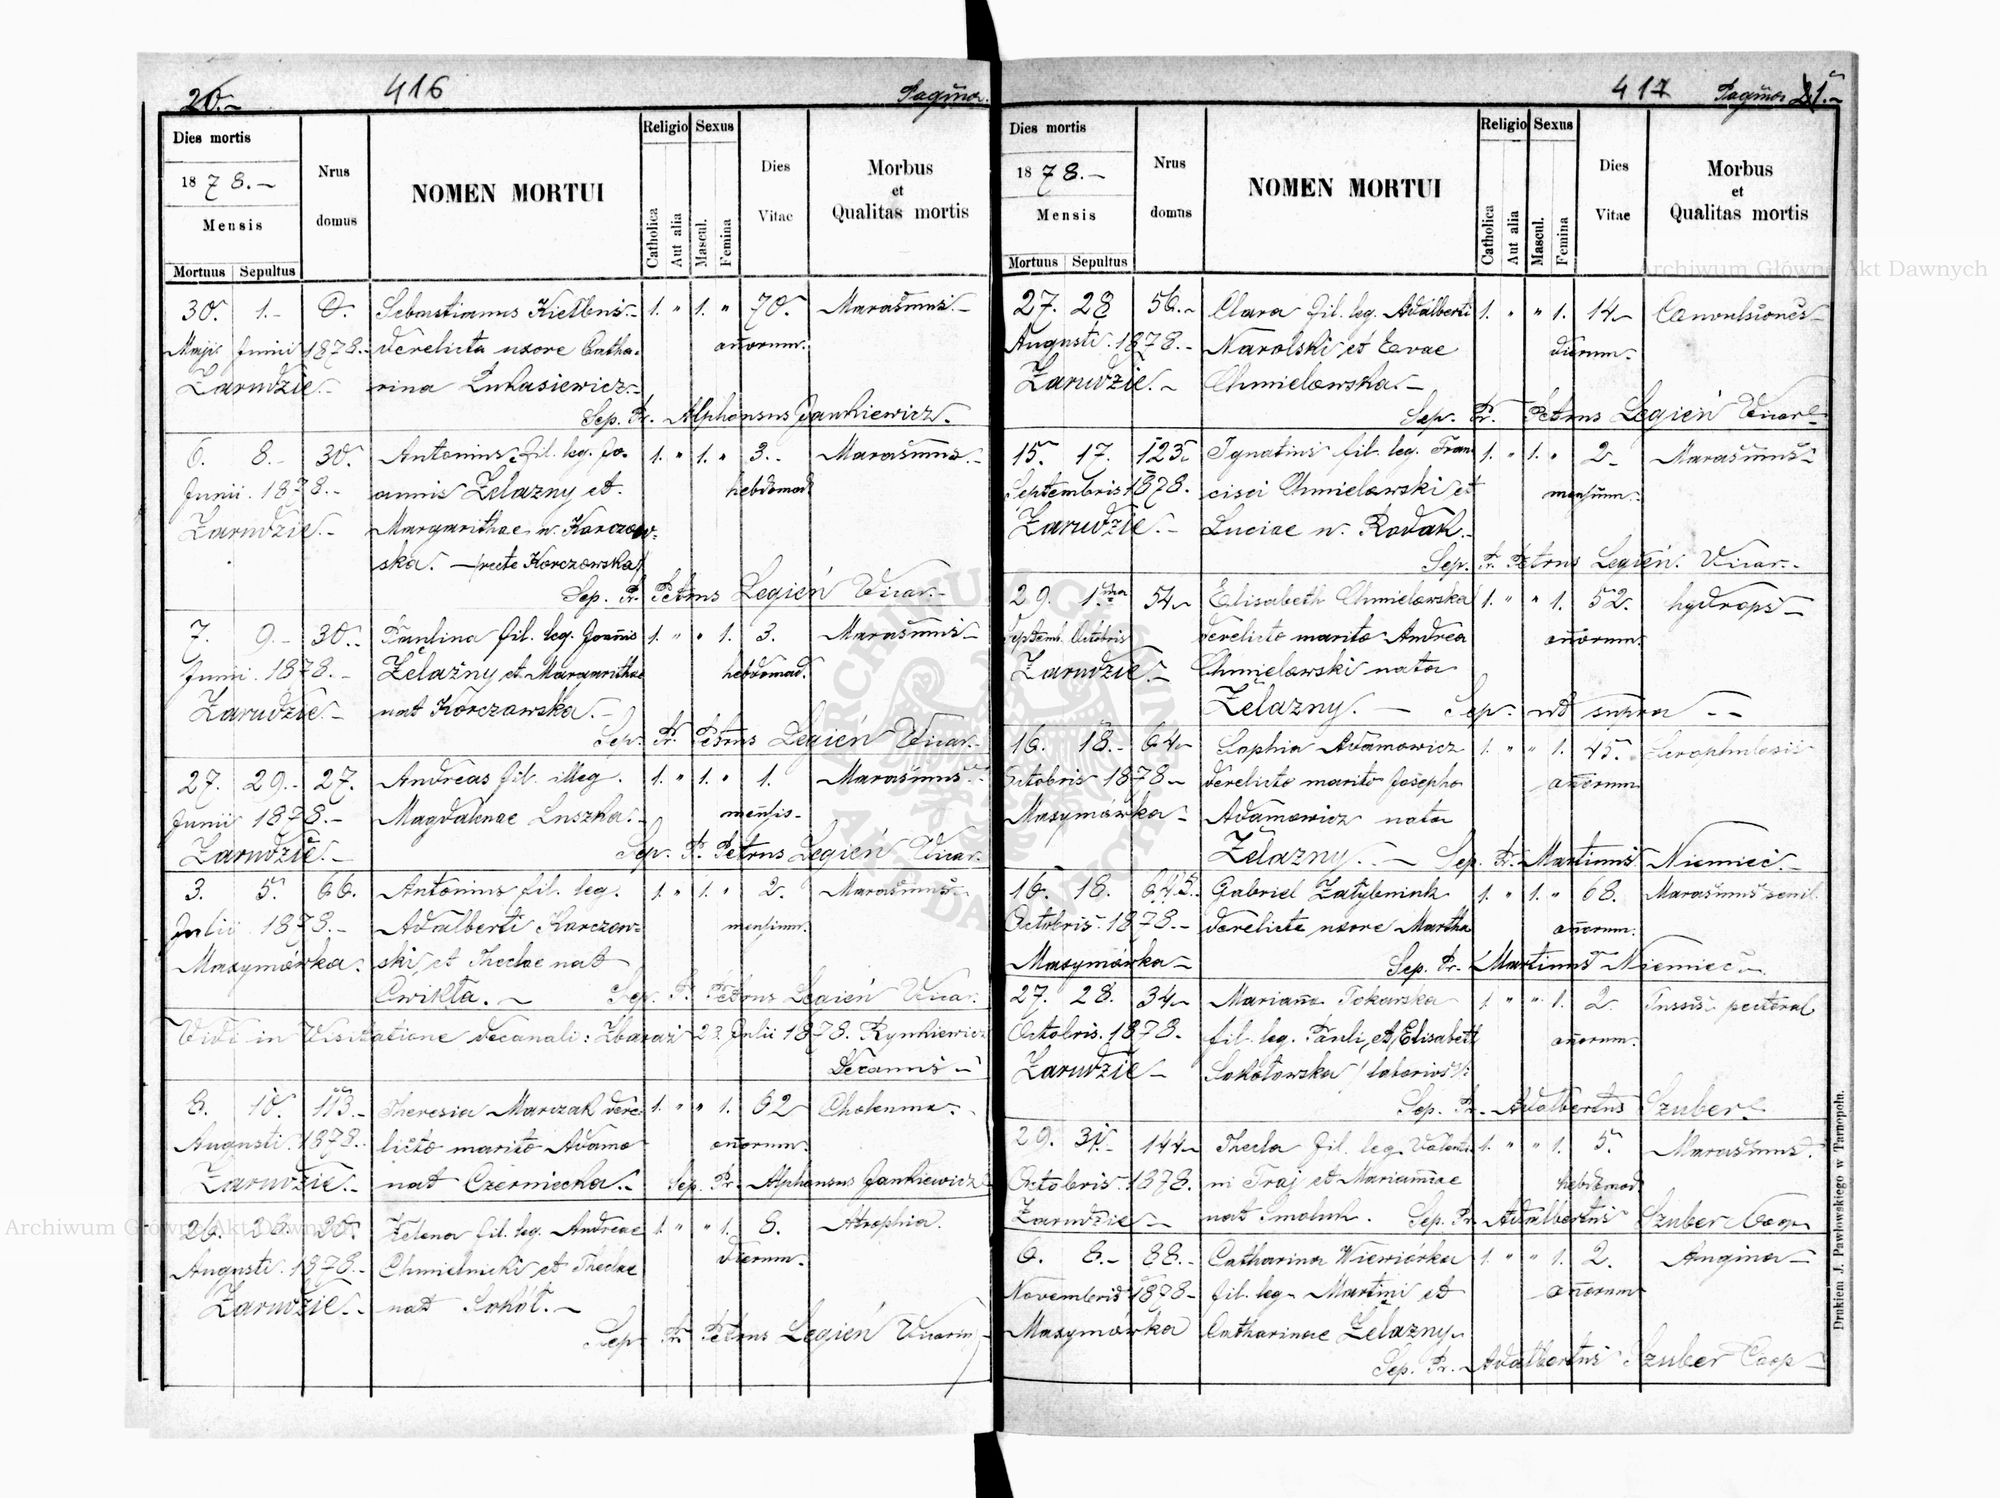 20.-
416
Pagina
Dies mortis
1878.-
Mensis
Mortuus Sepultus
Nrus domus
NOMEN MORTUI
Religio
Catholica
Aut alia
Sexus
Mascul.
Femina
Dies Vitae
Morbus et Qualitas mortis
30. 1.- 8. Sebastianus Kiełbus.- 1. " 1. " 70. Marasmus.-
Maji Junii 1878.- derelicta uxore Catha- annorum.-
Zarudzie.- rina Łukasiewicz.-
Sep. Pr. Alphonsus Jankiewicz.-
6. 8.- 30. Antonius fil. leg. Jo- 1. " 1. " 3.- Marasmus.-
Junii. 1878.- annis Żelazny et hebdomad
Zarudzie.- Margarithae n. Korczow-
ska. - (recte Korczowska)
Sep. Pr. Petrus Legień Vicar.-
7. 9.- 30.- Paulina fil. leg. Joannis 1. " " 1. 3. Marasmus-
Junii. 1878.- Żelazny et Margarithae hebdomad.
Zarudzie.- nat Korczowska.-
Sep. Pr. Petrus Legień Vicar.-
27. 29.- 27. Andreas fil. illeg. 1. " 1. " 1. Marasmus
Junii 1878.- Magdalenae Luszka.- mensis-
Zarudzie.-
Sep. P. Petrus Legień Vicar.
3. 5. 66. Antonius fil. leg. 1. " 1. " 2. Marasmus-
Julii 1878.- Adalberti Korczow- mensium.
Masymówka. ski, et Theclae nat
Cwikła.-
Sep. P. Petrus Legień Vicar.
Vidi in Visitatione decanali: Zbaraż 23 Julii 1878. Rynkiewicz
Decanus-
8. 10. 113. Theresia Marczak dere- 1. " " 1. 62 Cholerma.-
Augusti. 1878.- licto marito Adamo annorum.
Zarudzie.- nat Czerniecka.-
Sep. Pr. Alphonsus Jankiewicz
26. 28. 30. Helena fil. leg. Andreae 1. " " 1. 8. Atrophia.
Augusti. 1878.- Chmielnicki et Theclae dierum.
Zarudzie.- nat Sokół.-
Sep. Pr. Petrus Legień Vicariu
417
Pagina 21.-
Dies mortis
1878.-
Mensis
Mortuus Sepultus
Nrus domus
NOMEN MORTUI
Religio
Catholica
Aut alia
Sexus
Mascul.
Femina
Dies Vitae
Morbus et Qualitas mortis
27. 28 56.- Clara fil. leg. Adalberti 1. " " 1. 14- Convulsiones-
Augusti. 1878.- Narolski et Evae dierum.
Zarudzie.- Chmielowska.-
Sep. Pr. Petrus Legień Vicar
15. 17. 123. Ignatius fil. leg. Fran 1. " 1. " 2- Marasmus-
Septembris 1878. cisci Chmielowski et mensium.
Zarudzie.- Luciae n. Rodak.-
Sep. Pr. Petrus Legień. Vicar.-
29. 1.ma 54- Elisabeth Chmielowska 1. " " 1. 52. hydrops-
Septemb. Octobris derelicto marito Andrea annorum.
Zarudzie.- Chmielowski nata
Żelazny.- Sep. ud supra --
16. 18.- 64- Sophia Adamowicz 1. " " 1. 45.
Octobris 1878- derelicto marito Josepho annorum
Masymówka- Adamowicz nata
Żelazny.- Sep. Pr. Martinus Niemiec.-
16. 18. Gabriel 1. " 1. " 68. Marasmus senil.
Octobris. 1878.- derelicta uxore Martha annorum.
Masymówka-
Sep. Pr. Martinus Niemiec.-
27. 28. 34- Marianna Tokarska 1. " " 1. 2. Tussis pectoral
Octobris. 1878. fil. leg. Pauli, et Elisabeth annorum.
Zarudzie- Sokołowska
Sep. Pr. Adalbertus Szuber
29. 31. 144- Thecla fil. leg. Valenti 1. " " 1. 5. Marasmus.
Octobris 1878. ni Traj et Mariannae hebdomad.
Zarudzie- nat Smoluk. Sep. Pr. Adalbertus Szuber Coop
6. 8.- 88. Catharina Wiewiórka 1. " " 1. 2. Angina-
Novembris 1878- fil. leg- Martini et annorum
Masymowka Catharinae Żelazny-
Sep. Pr. Adalbertus Szuber Coop-
Drukiem J. Pawłowskiego w Tarnopolu.
Archiwum Główne Akt Dawnych
Archiwum Główne Akt Dawnych
ARCHIWUM GŁÓWNE AKT DAWNYCH